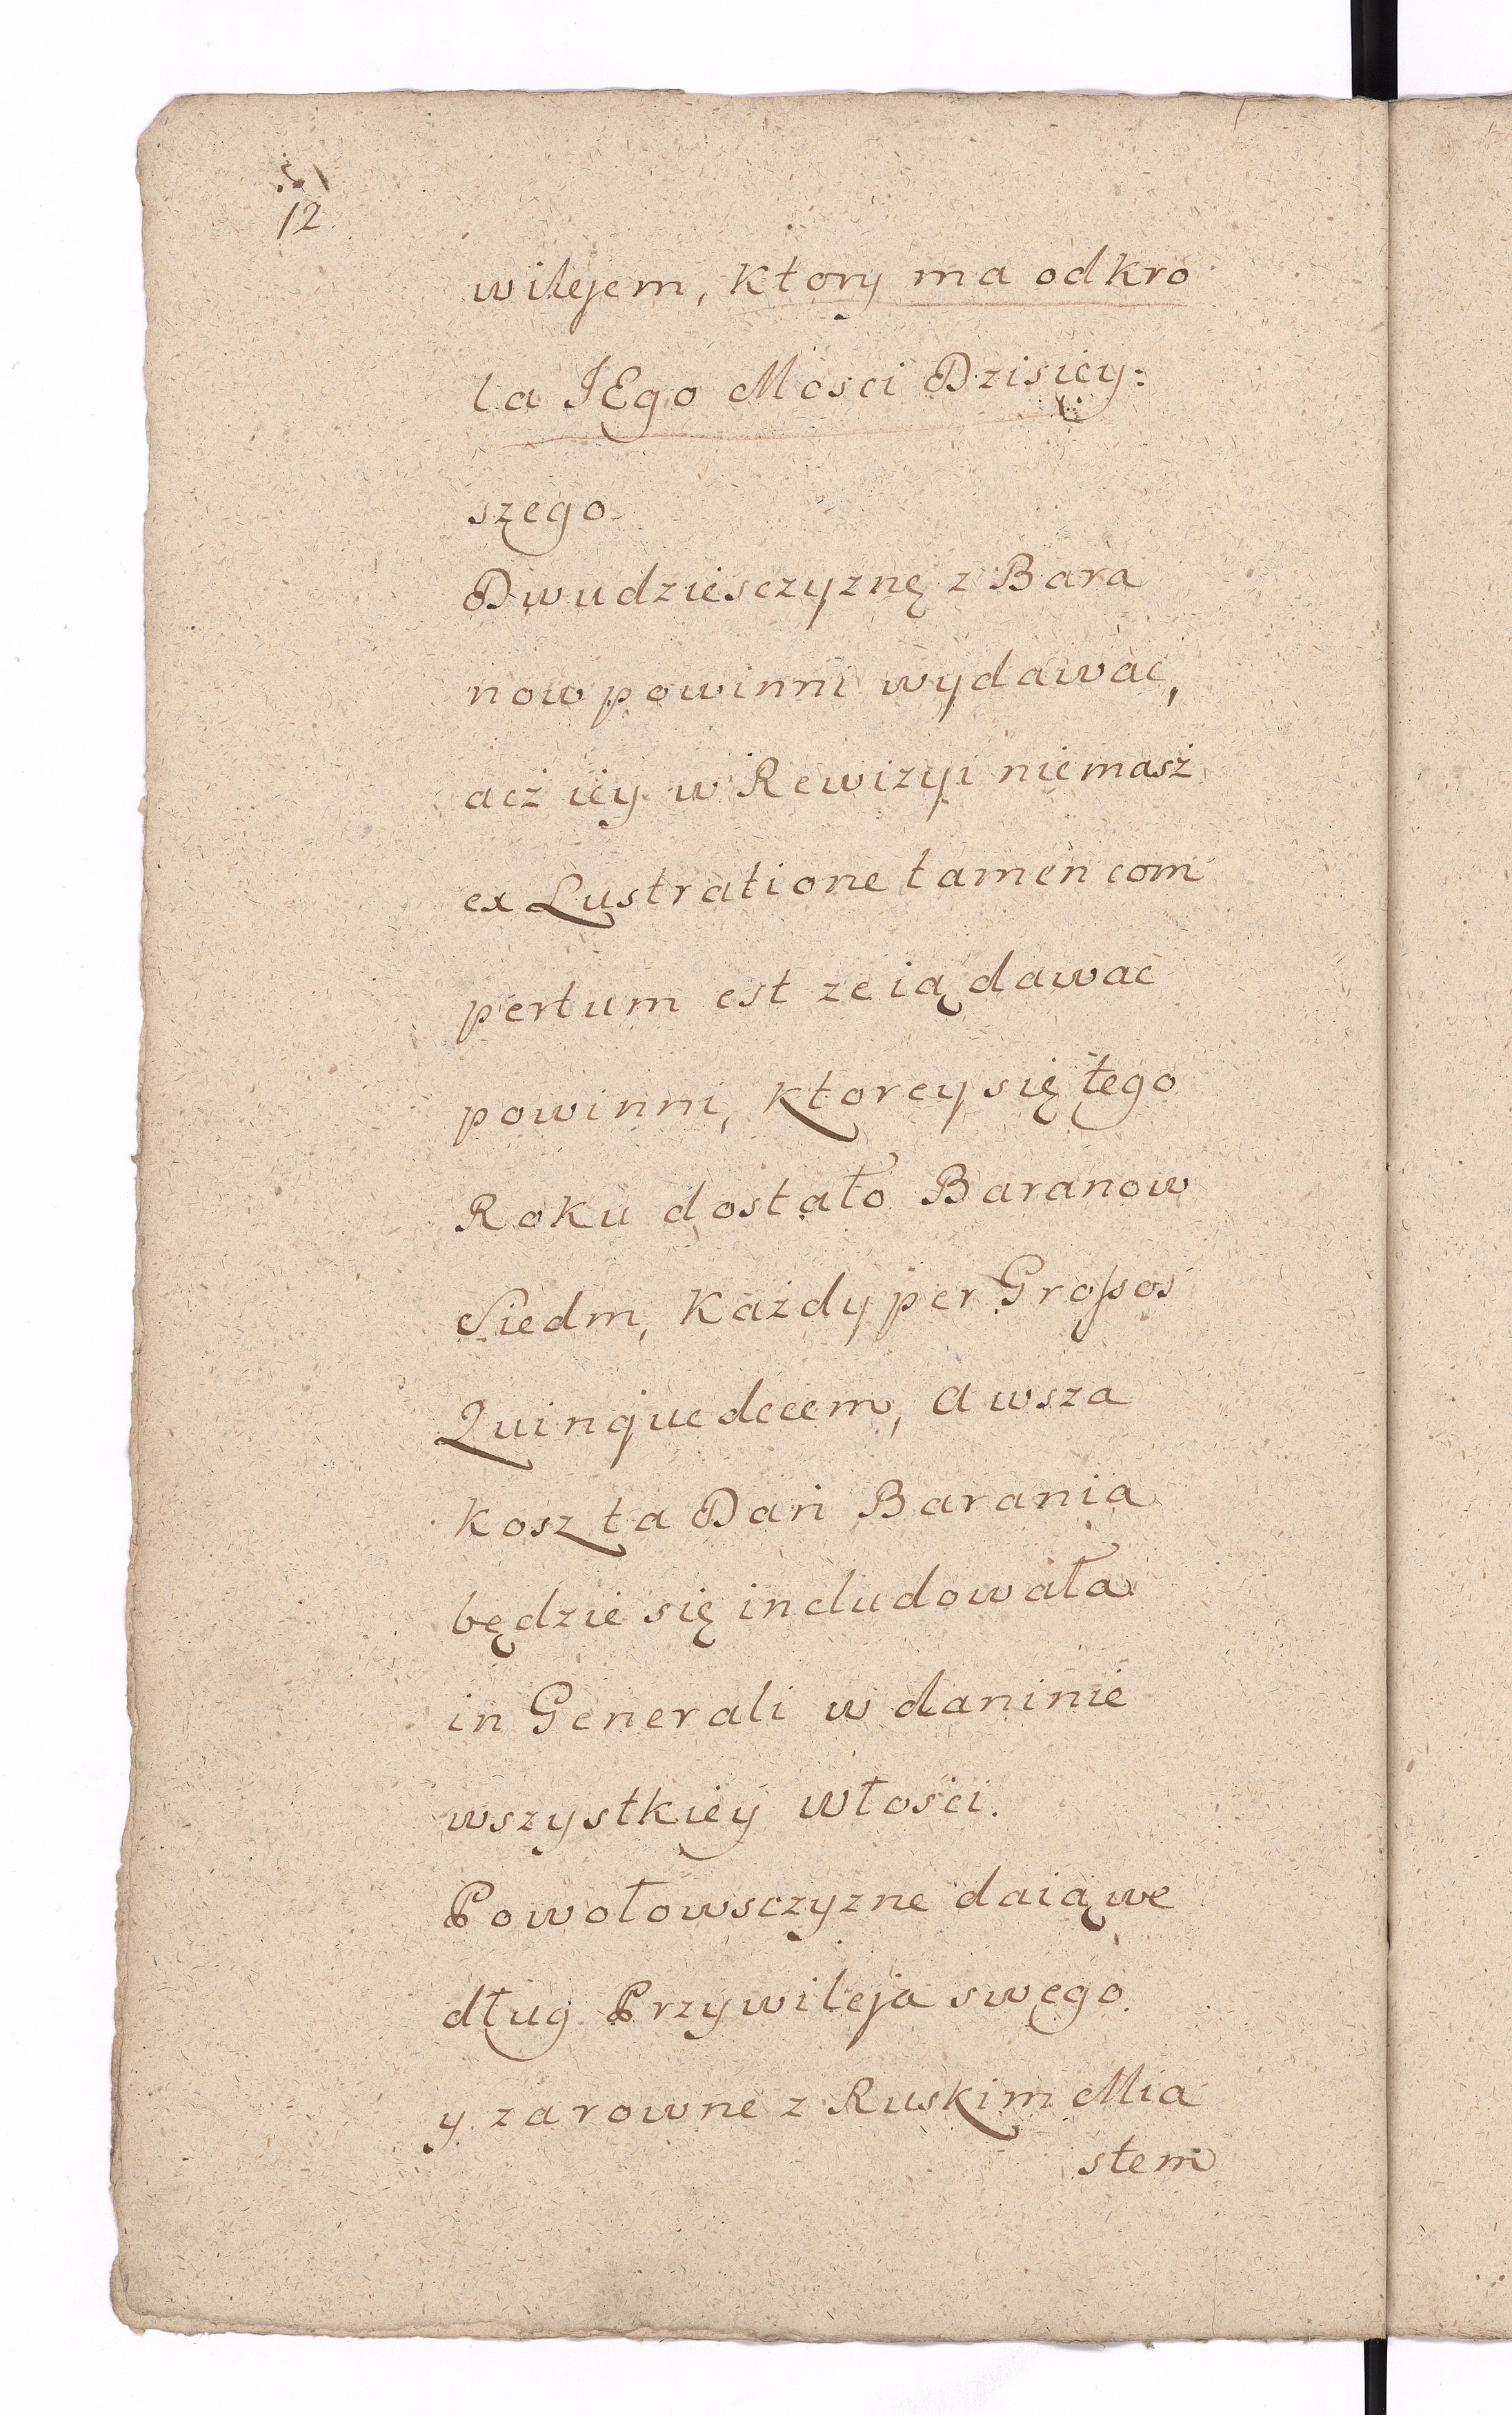 12
wilejem, Ktory ma od Kro
la JEgo Mosci Dzisiey:
szego
Dwudziesczyznę z Bara
now powinni wydawac,
acż iey w Rewizyi niemasż
ex Lustratione tamen com
pertum est ze ią dawac
powinni, Ktorey się tego
Roku dostało Baranow
Siedm, Każdy per Großos
Quinquedecem, a wsza
Kosz ta Dań Barania
będzie się includowała
in Generali w daninie
wszystkiey włosci.
Powołowsczyzne daią we
dług Przywileja swego
y zarowne z Ruskim Mia
stem